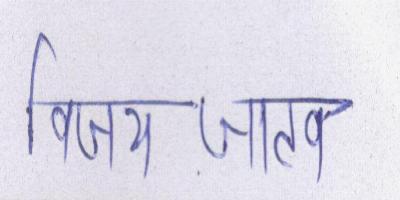 विजय जाटव